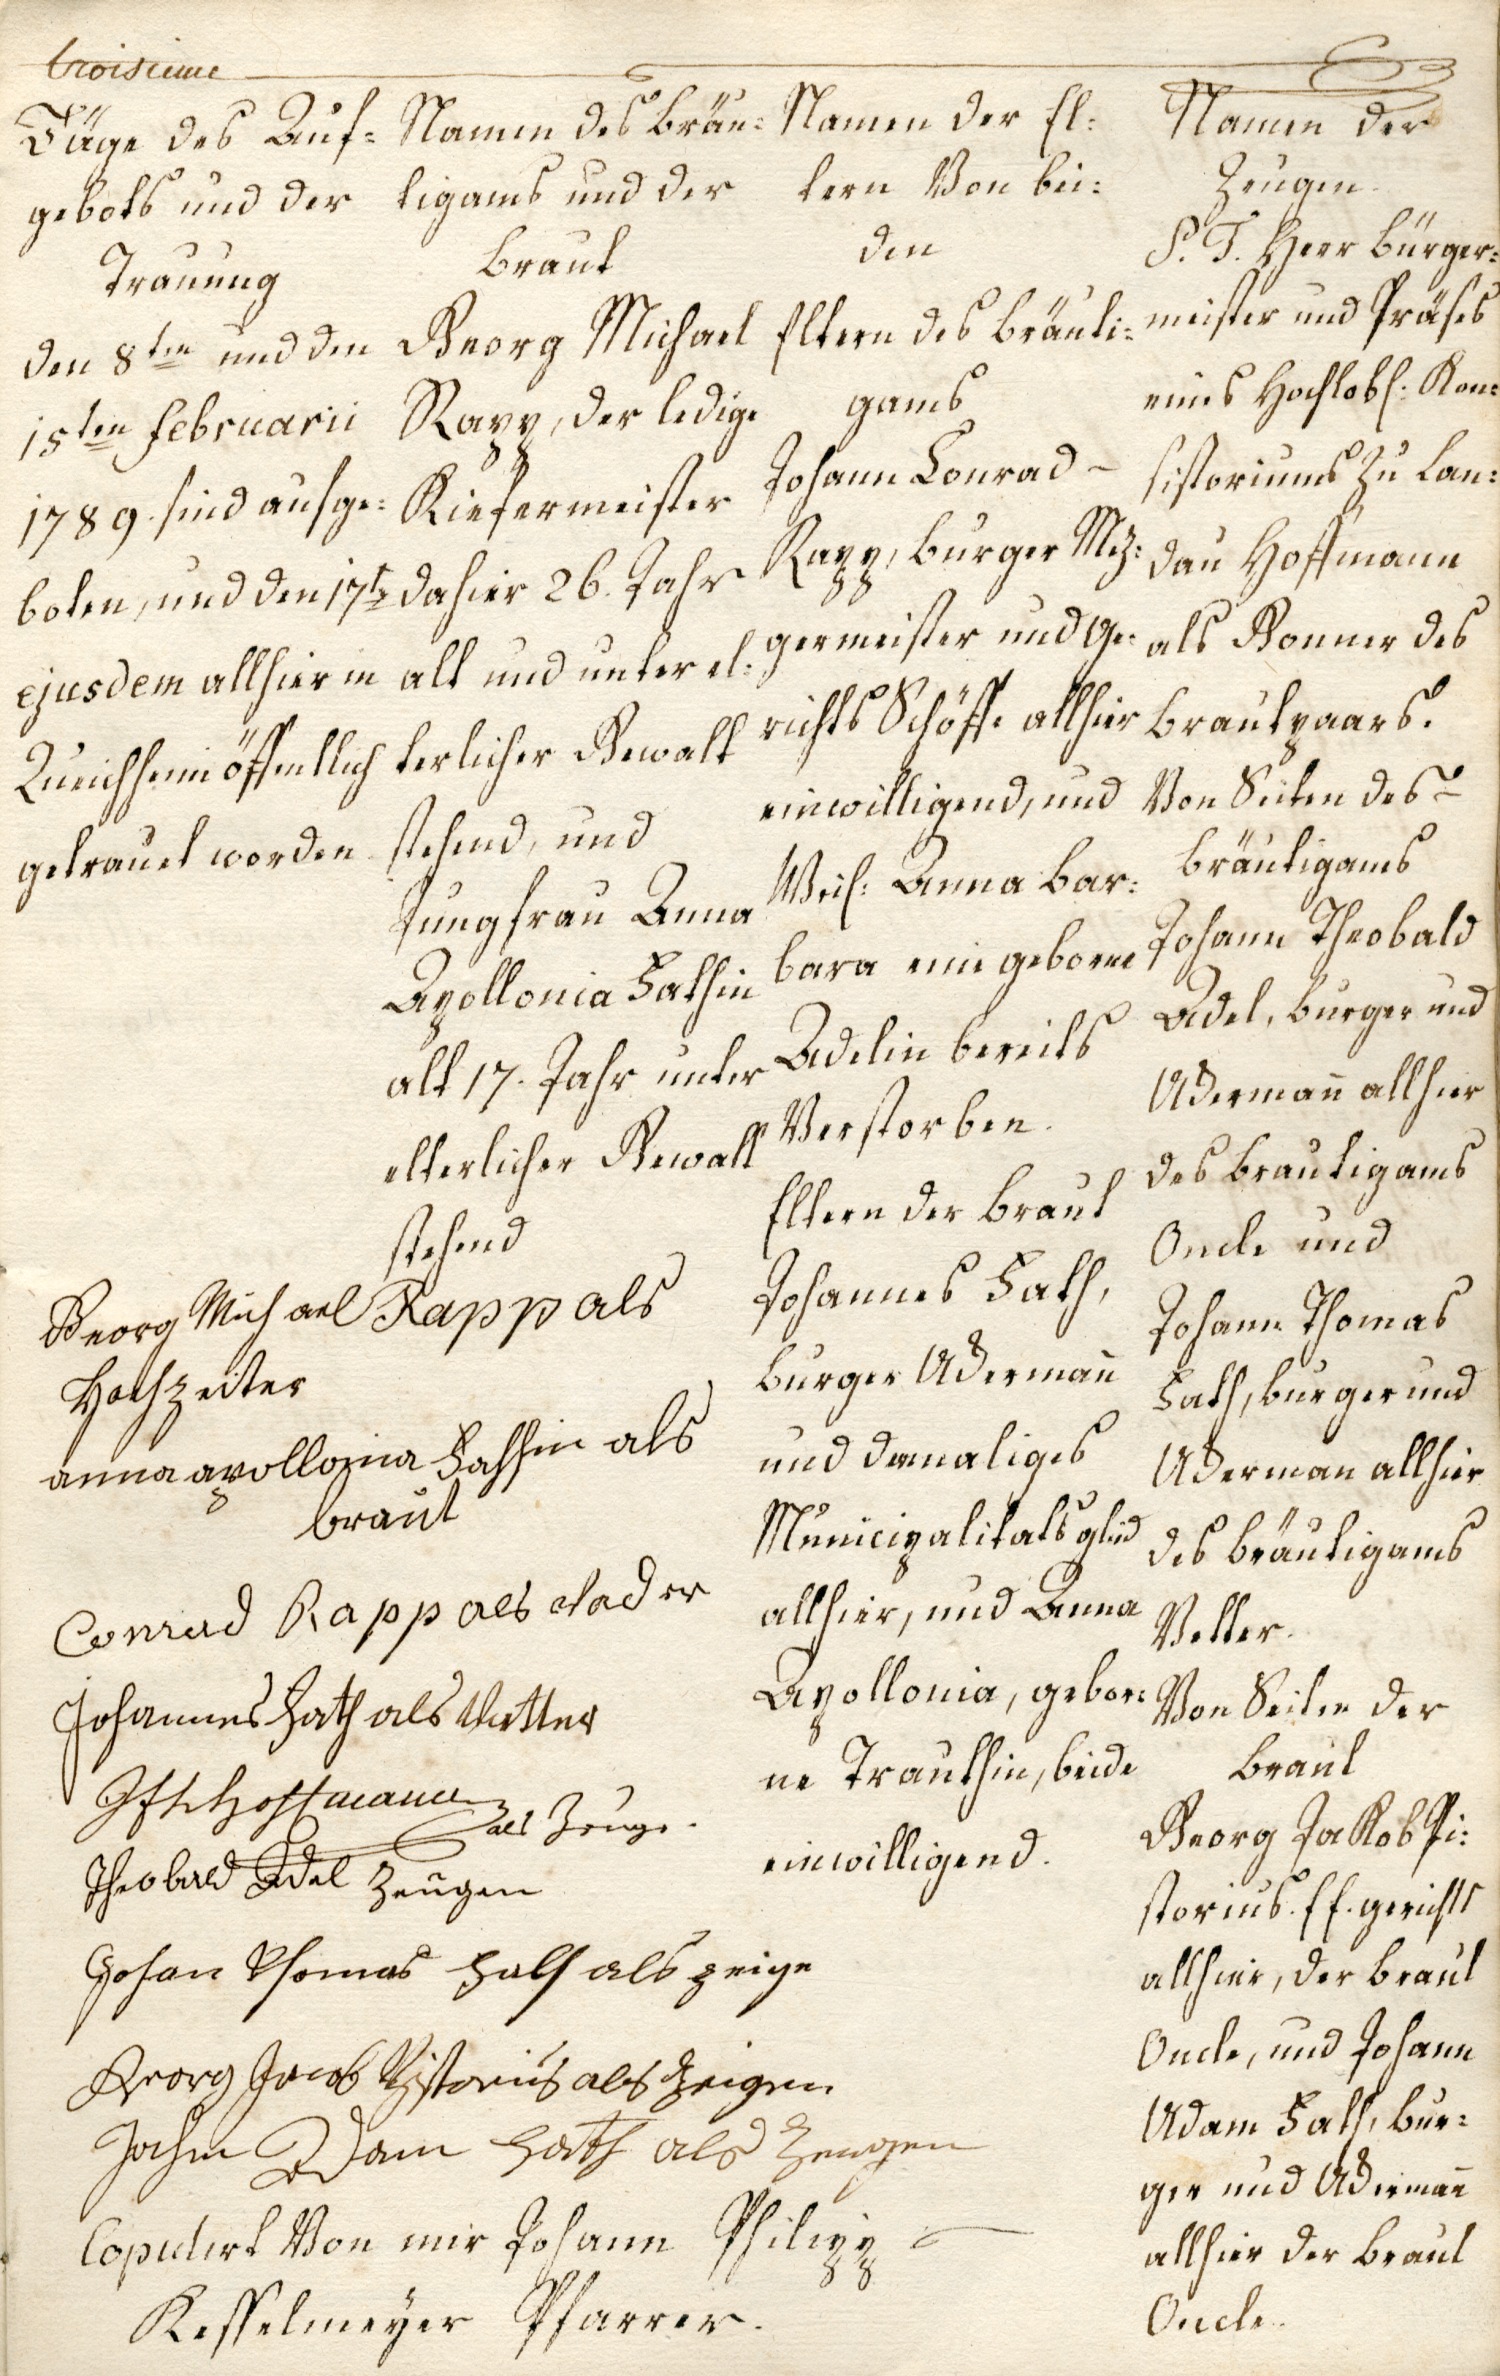 troisieme
Täge des Auf=
gebots und der
Trauung
den 8ten und den
15ten Februarii
1789. sind aufge=
boten, und den 17t
ejusdem allhier in
Queichheim öffentlich
getrauet worden.
Namen des Bräu=
tigams und der
Braut
Georg Michael
Rapp, der ledige
Kiefermeister
dahier 26. Jahr
alt und unter el=
terlicher Gewalt
stehend, und
Jungfrau Anna
Apollonia Hathin
alt 17. Jahr unter
elterlicher Gewalt
stehend
Namen der El=
tern Von bei=
den
Eltern des Bräuti=
gams
Johann Conrad
Rapp, Burger Mez=
germeister und Ge=
richts Schöffe allhier
einwilligend, und
Weil: Anna Bar=
bara eine geborne
Adelin bereits
Verstorben.
Eltern der Braut
Johannes Hath,
Burger Ackermañ
und damaliges
Municipalitatsglied
allhier, und Anna
Apollonia, gebor=
ne Trauthin, beide
einwilligend.
Namen der
Zeugen.
S. T. Herr Bürger=
meister und Präses
eines Hochlobl: Kon=
sistoriums zu Lan=
dau Hoffmann
als Gonner des
Brautpaars.
Von Seiten des
Bräutigams
Johann Theobald
Adel, Burger und
Ackermañ allhier
des Brautigams
Oncle und
Johann Thomas
Hath, Burger und
Ackerman allhier
des Bräutigams
Vetter.
Von Seiten der
Braut
Georg Jakob Pi=
storius. E. E. Gerichts
allhier, der Braut
Oncle, und Johann
Adam Hath, Bur=
ger und Ackermañ
allhier der Braut
Oncle.
Georg Michael Rapp als
Hochzeiter
anna apollonia Hathin als
braut
Conrad Rapp als
Johannes Hath als Vatter
Hoffmann
als Zeuge.
Theobald Adel Zeugen
Johan Thomas Hath als zeige
Georg Jacob Pistorius als Zeigen
Adam Hath als Zeugen
Copulirt Von mir Johann Philipp
Kesselmeyer Pfarrer.